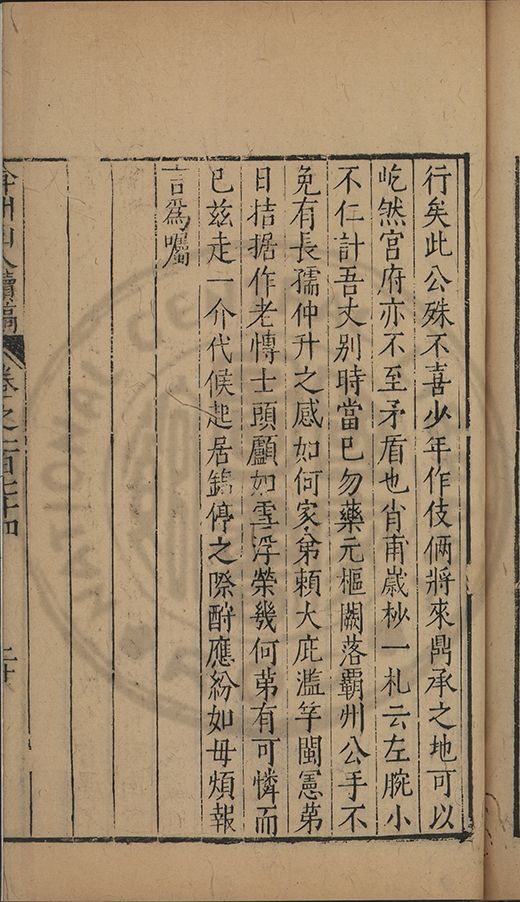 行矣此公殊不喜少年作伎倆將來鼎承之地可以
屹然宮府亦不至矛盾也肖甫歲杪一札云左腕小
不仁計吾丈別時當已勿藥元樞闕落霸州公手不
免有長孺仲升之感如何家弟賴大庇濫竽閩憲第
日拮据作老慱士頭顱如雪浮榮幾何第有可憐而
已兹走一介代候起居鷁停之際酧應紛如毋煩報
言爲囑
弇州山人續稿 卷之一百七十四